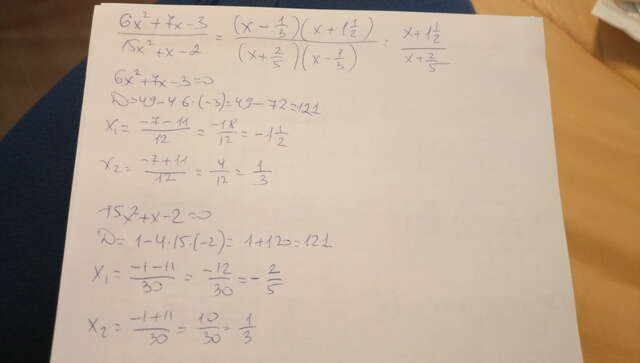 (6x²+7x-3)/(15x²+x-2) = ((x-1/3)(x+1 1/2))/((x+2/5)(x-1/3)) = (x+1 1/2)/(x+2/5)
6x²+7x-3=0
D=49-4·6·(-3)=49-72=121
x₁= (-7-11)/12 = -18/12 = -1 1/2
x₂= (-7+11)/12 = 4/12 = 1/3
15x²+x-2=0
D= 1-4·15·(-2)= 1+120=121
x₁= (-1-11)/30 = -12/30 = -2/5
x₂= (-1+11)/30 = 10/30 = 1/3